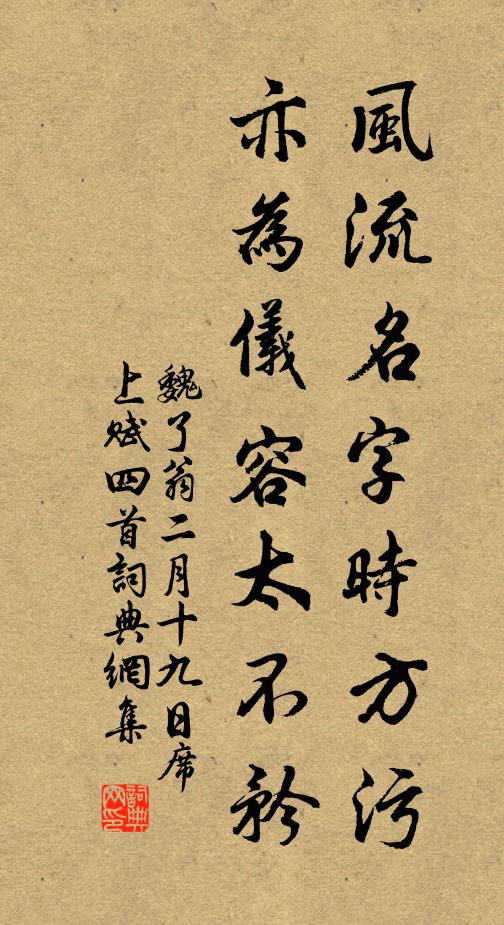 風流名字時方污
亦為儀容太不矜
魏了翁二月十九日席
上賦四首詞典網集
詞典
网印